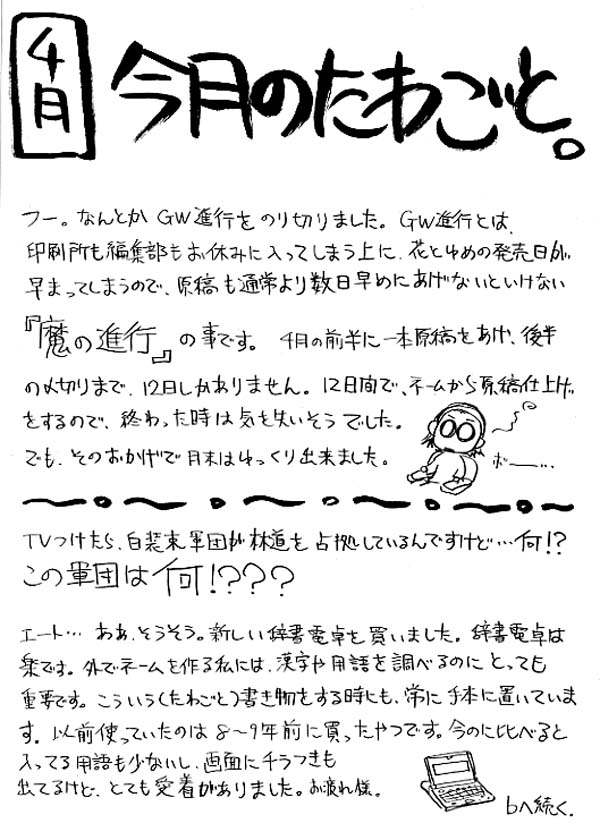 4月
今月のたわごと。
フー。なんとか GW進行を のり切りました。GW進行とは、
印刷所も編集部もお休みに入ってしまう上に、花とゆめの発売日が、
早まってしまうので、原稿も通常より数日早めにあげないといけない
『魔の進行』の事です。 4月の前半に一本原稿をあげ、後半
の〆切りまで、12日しかありません。12日間で、ネームから原稿仕上げ。
をするので、終わった時は気を失いそうでした。
でも、そのおかげで月末はゆっくり出来ました。
ボー──…
TVつけたら、白装束軍団が林道を占拠しているんですけど…何!?
この軍団は何!???
エート… ああ、そうそう。新しい辞書電卓を買いました。辞書電卓は
楽です。外でネームを作る私には、漢字や用語を調べるのにとっても
重要です。こういう(たわごと)書き物をする時にも、常に手本に置いていま
す。以前使っていたのは8〜9年前に買ったやつです。今のに比べると
入ってる用語も少ないし、画面にチラつきも
出てるけど、とても愛着がありました。お疲れ様。
bへ続く.